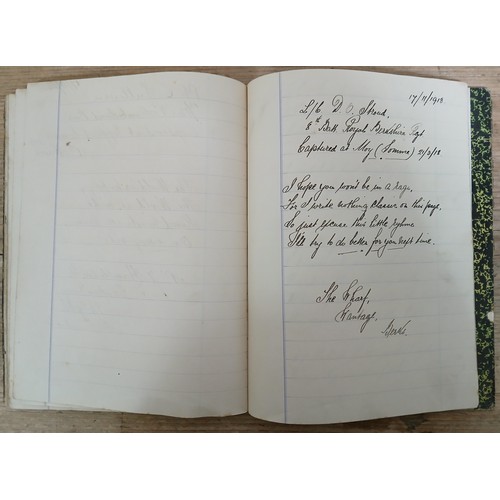 17/11/1918
L/C D. O. Stroud,
8th Batt Royal Berkshire Rgt
Captured at Moy (Somme) 21/3/18
I hope you won't be in a rage,
For I write nothing classic on this page,
So just excuse this little rhyme
I'll try to do better for you next time.
The Wharf,
Wantage,
Berks.